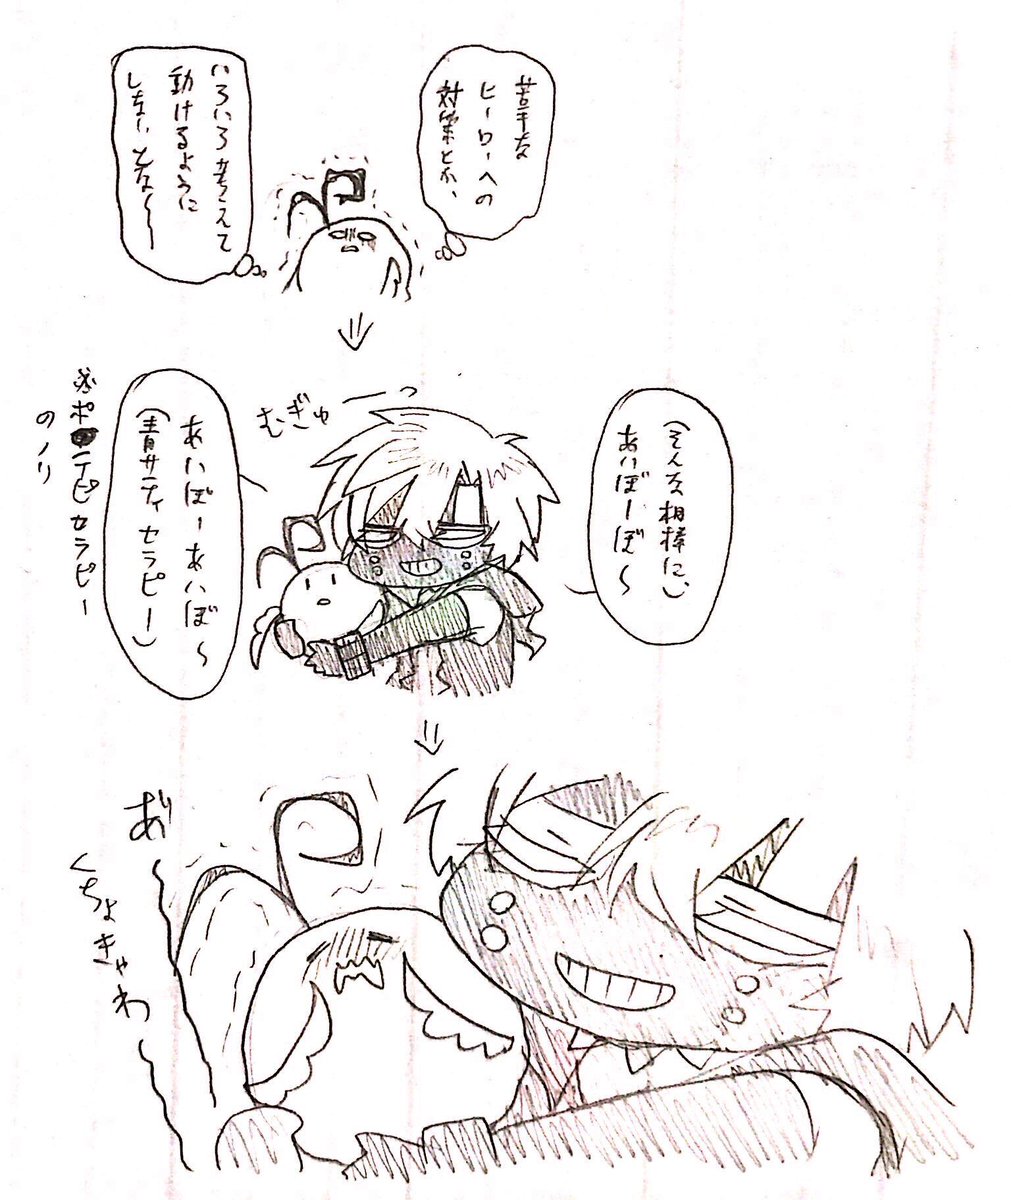 苦手な
ヒーローへの
対策とか、
いろいろ考えて
動けるように
しないとな〜〜
むぎゅーっ
(そんな相棒に、)
あいぼーぼ〜
あいぼーあいぼ〜
(青サティセラピー)
のノリ
あ〜〜
くちょきゃわ〜